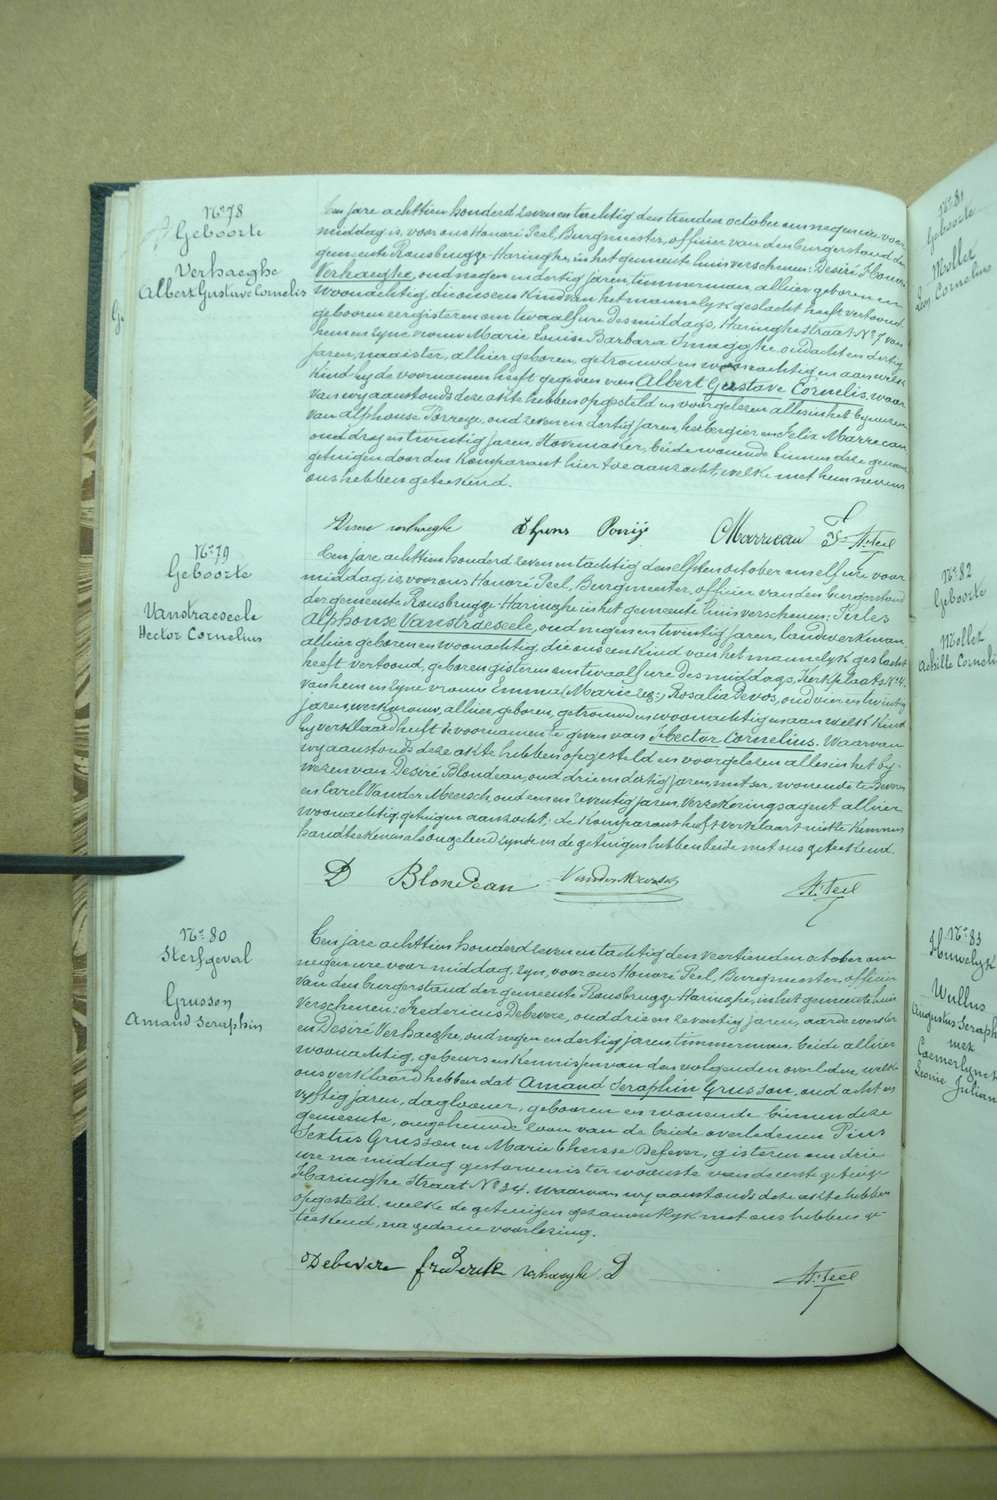 Nr 78
Geboorte
Verhaeghe
Albert Gustave Cornelis
Een jare achttien honderd zeven en tachtig den tienden october om negen ure voor
middag is, voor ons Honoré Peel, Burgmeester, officier van den burgerstand der
gemeente Rousbrugge-Haringhe, in het gemeentehuis verschenen: Desiré Honoré
Verhaeghe, oud negen en dertig jaren, timmerman, alhier geboren en
woonachtig, die ons een kind van het mannelyk geslacht heeft vertoond,
geboren eergisteren om twaalf ure des middags, Haringhestraat Nr 7 van
hem en zyne vrouw Marie Louise Barbara Smagghe, oud acht en dertig
jaren, naaister, alhier geboren, getrouwd en woonachtig en aan welk
kind hy de voornamen heeft gegeven van Albert Gustave Cornelis, waar
van wy aanstonds deze akte hebben opgesteld en voorgelezen alles in het bywezen
van Alphonse Porreye, oud zeven en dertig jaren, herbergier en Felix Marrecau
oud dry en twintig jaren, stovemaker, beide wonende binnen deze gemeente
getuigen door den komparant hier toe aanzocht, welke met hem nevens
ons hebben geteekend.
Desire verhaeghe Marrecau F Hr Peel
Nr 79
Geboorte
Vanstraeseele
Hector Cornelius
Een jare achttien honderd zeven en tachtig den elfsten october om elf ure voor
middag is, voor ons Honoré Peel, Burgmeester, officier van den burgerstand
der gemeente Rousbrugge-Haringhe in het gemeentehuis verschenen: Karles
Alphonse Vanstraeseele, oud negen en twintig jaren, landwerkman,
alhier geboren en woonachtig, die ons een kind van het mannelyk geslacht
heeft vertoond, geboren gisteren om twaalf ure des middags, Kerkplaats Nr 4.
van hem en zyne vrouw Emma (Marie zeg:) Rosalia Devos, oud vier en twintig
jaren, werkvrouw, alhier geboren, getrouwd en woonachtig en aan welk kind
hy verklaard heeft de voornamen te geven van Hector Cornelius. Waarvan
wy aanstonds deze akte hebben opgesteld en voorgelezen alles in het by-
wezen van Desiré Blondeau, oud drie en dertig jaren, metser, wonende te Beveren
en Carel Vander Meersch, oud een en zeventig jaren, verzekeringsagent alhier
woonachtig, getuigen aanzocht; de komparant heeft verklaart niet te kunnen
handteekenen als ongeleerd zynde en de getuigen hebben beide met ons geteekend
D Blondeau VanderMeersch Hr Peel
Nr 80
Sterfgeval
Grusson
Amand Seraphin
Een jare achttien honderd zeven en tachtig den veertienden october om
negen ure voor middag, zyn, voor ons Honoré Peel, Burgmeester, officier
van den burgerstand der gemeente Rousbrugge-Haringhe, in het gemeentehuis
verschenen: Fredericus Debevere, oud drie en zeventig jaren, aardewerker
en Desiré Verhaeghe, oud negen en dertig jaren, timmerman, beide alhier
woonachtig, gebeurs en kennissen van den volgenden overleden, welke
ons verklaard hebben dat Amand Seraphin Grusson, oud acht en
vyftig jaren, daglooner, geboren en wonende binnen deze
gemeente, ongehuwde zoon van de beide overledenen Pius
Sextus Grusson en Marie Therese Defever, gisteren om drie
ure na middag gestorven is ter woonste van de eerste getuige
Haringhe Straat Nr 34. Waarvan wy aanstonds deze akte hebben
opgesteld, welke de getuigen gezamentlyk met ons hebben ge-
teekend, na gedane voorlezing.
Debevere frederik verhaeghe D Hr Peel
Nr 81
Geboorte
Mollet
Leon Cornelius
Nr 82
Geboorte
Mollet
Achille Corneli
Nr 83
Huwelyk
Wullus
Augustus Seraph
met
Caenerlynck
Leonie Julian